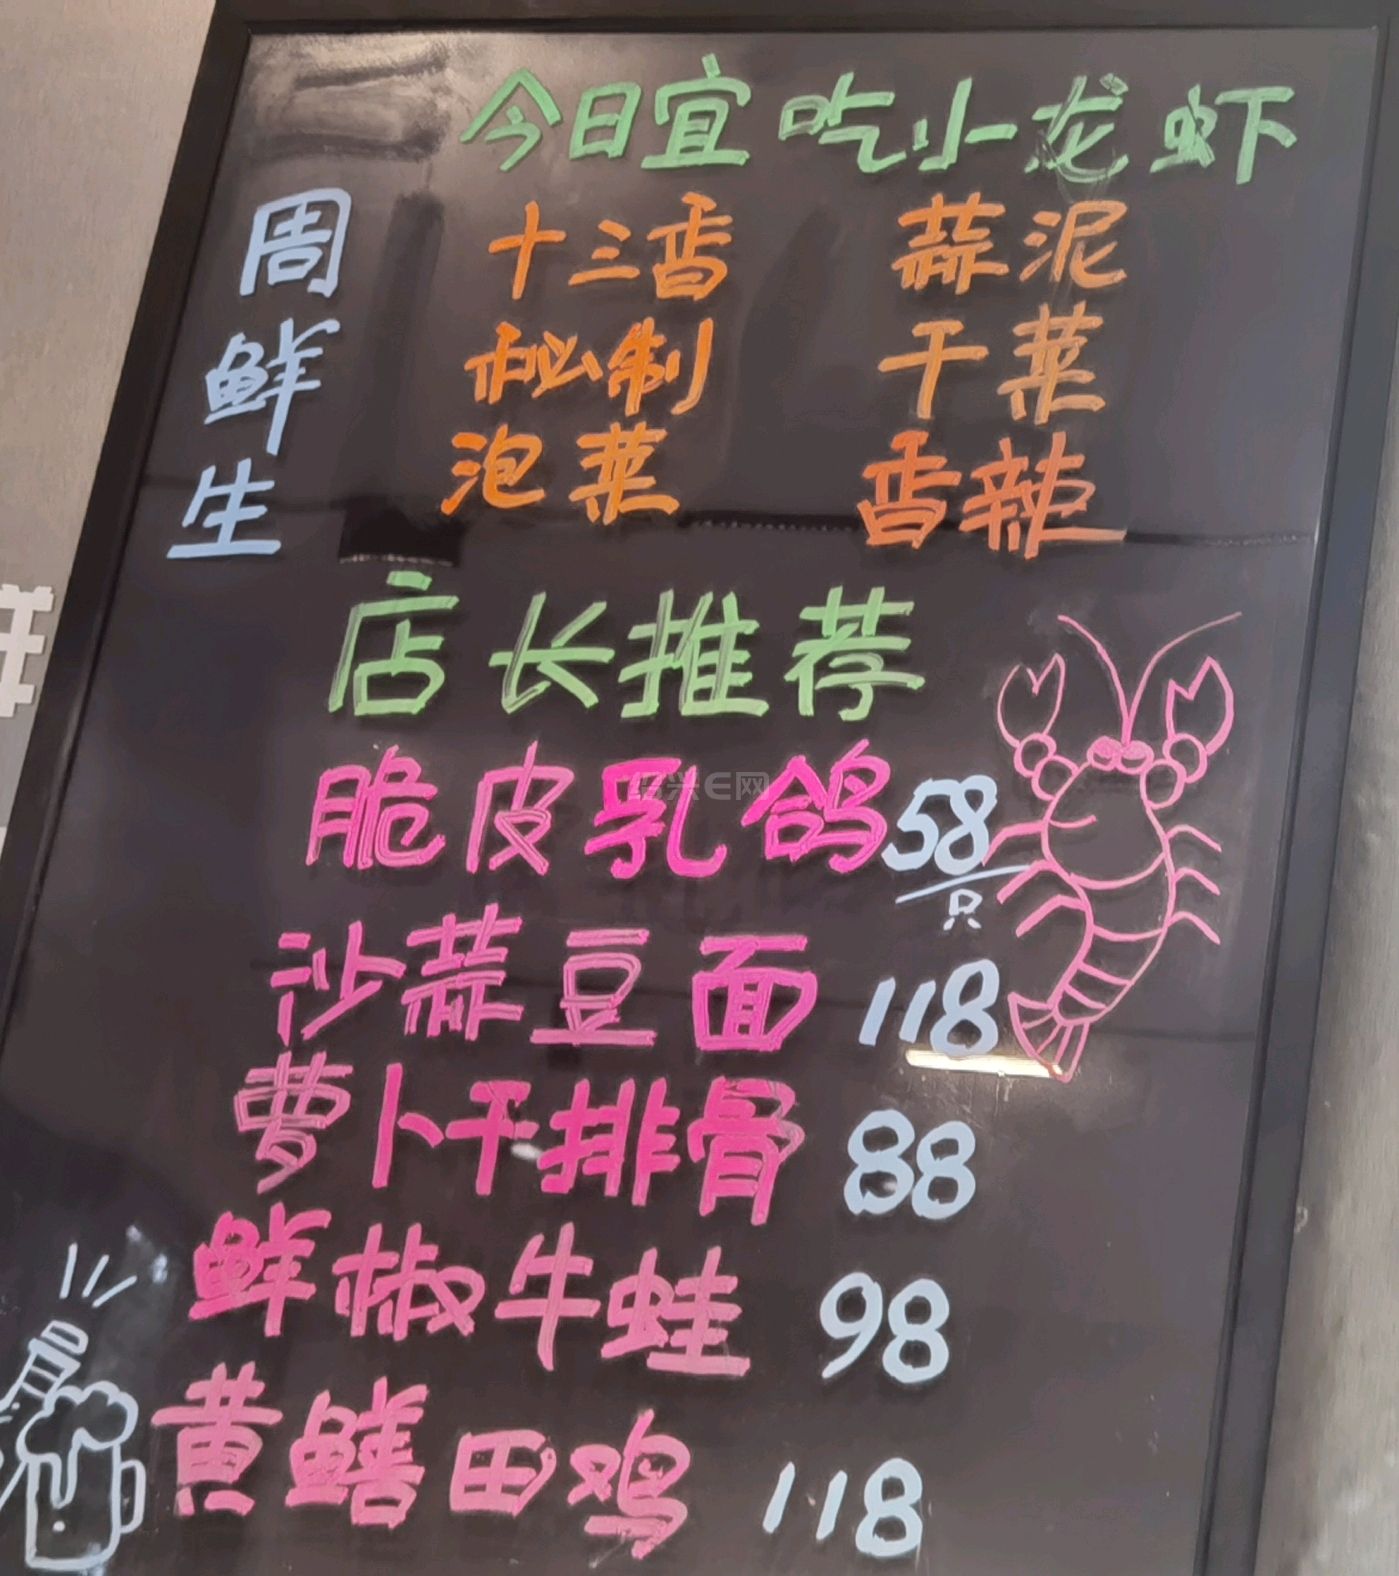 今日宜吃小龙虾
周鲜生
十三香 蒜泥
秘制 干菜
泡菜 香辣
店长推荐
脆皮乳鸽 58/只
沙蒜豆面 118
萝卜干排骨 88
鲜椒牛蛙 98
黄鳝田鸡 118
绍兴E网